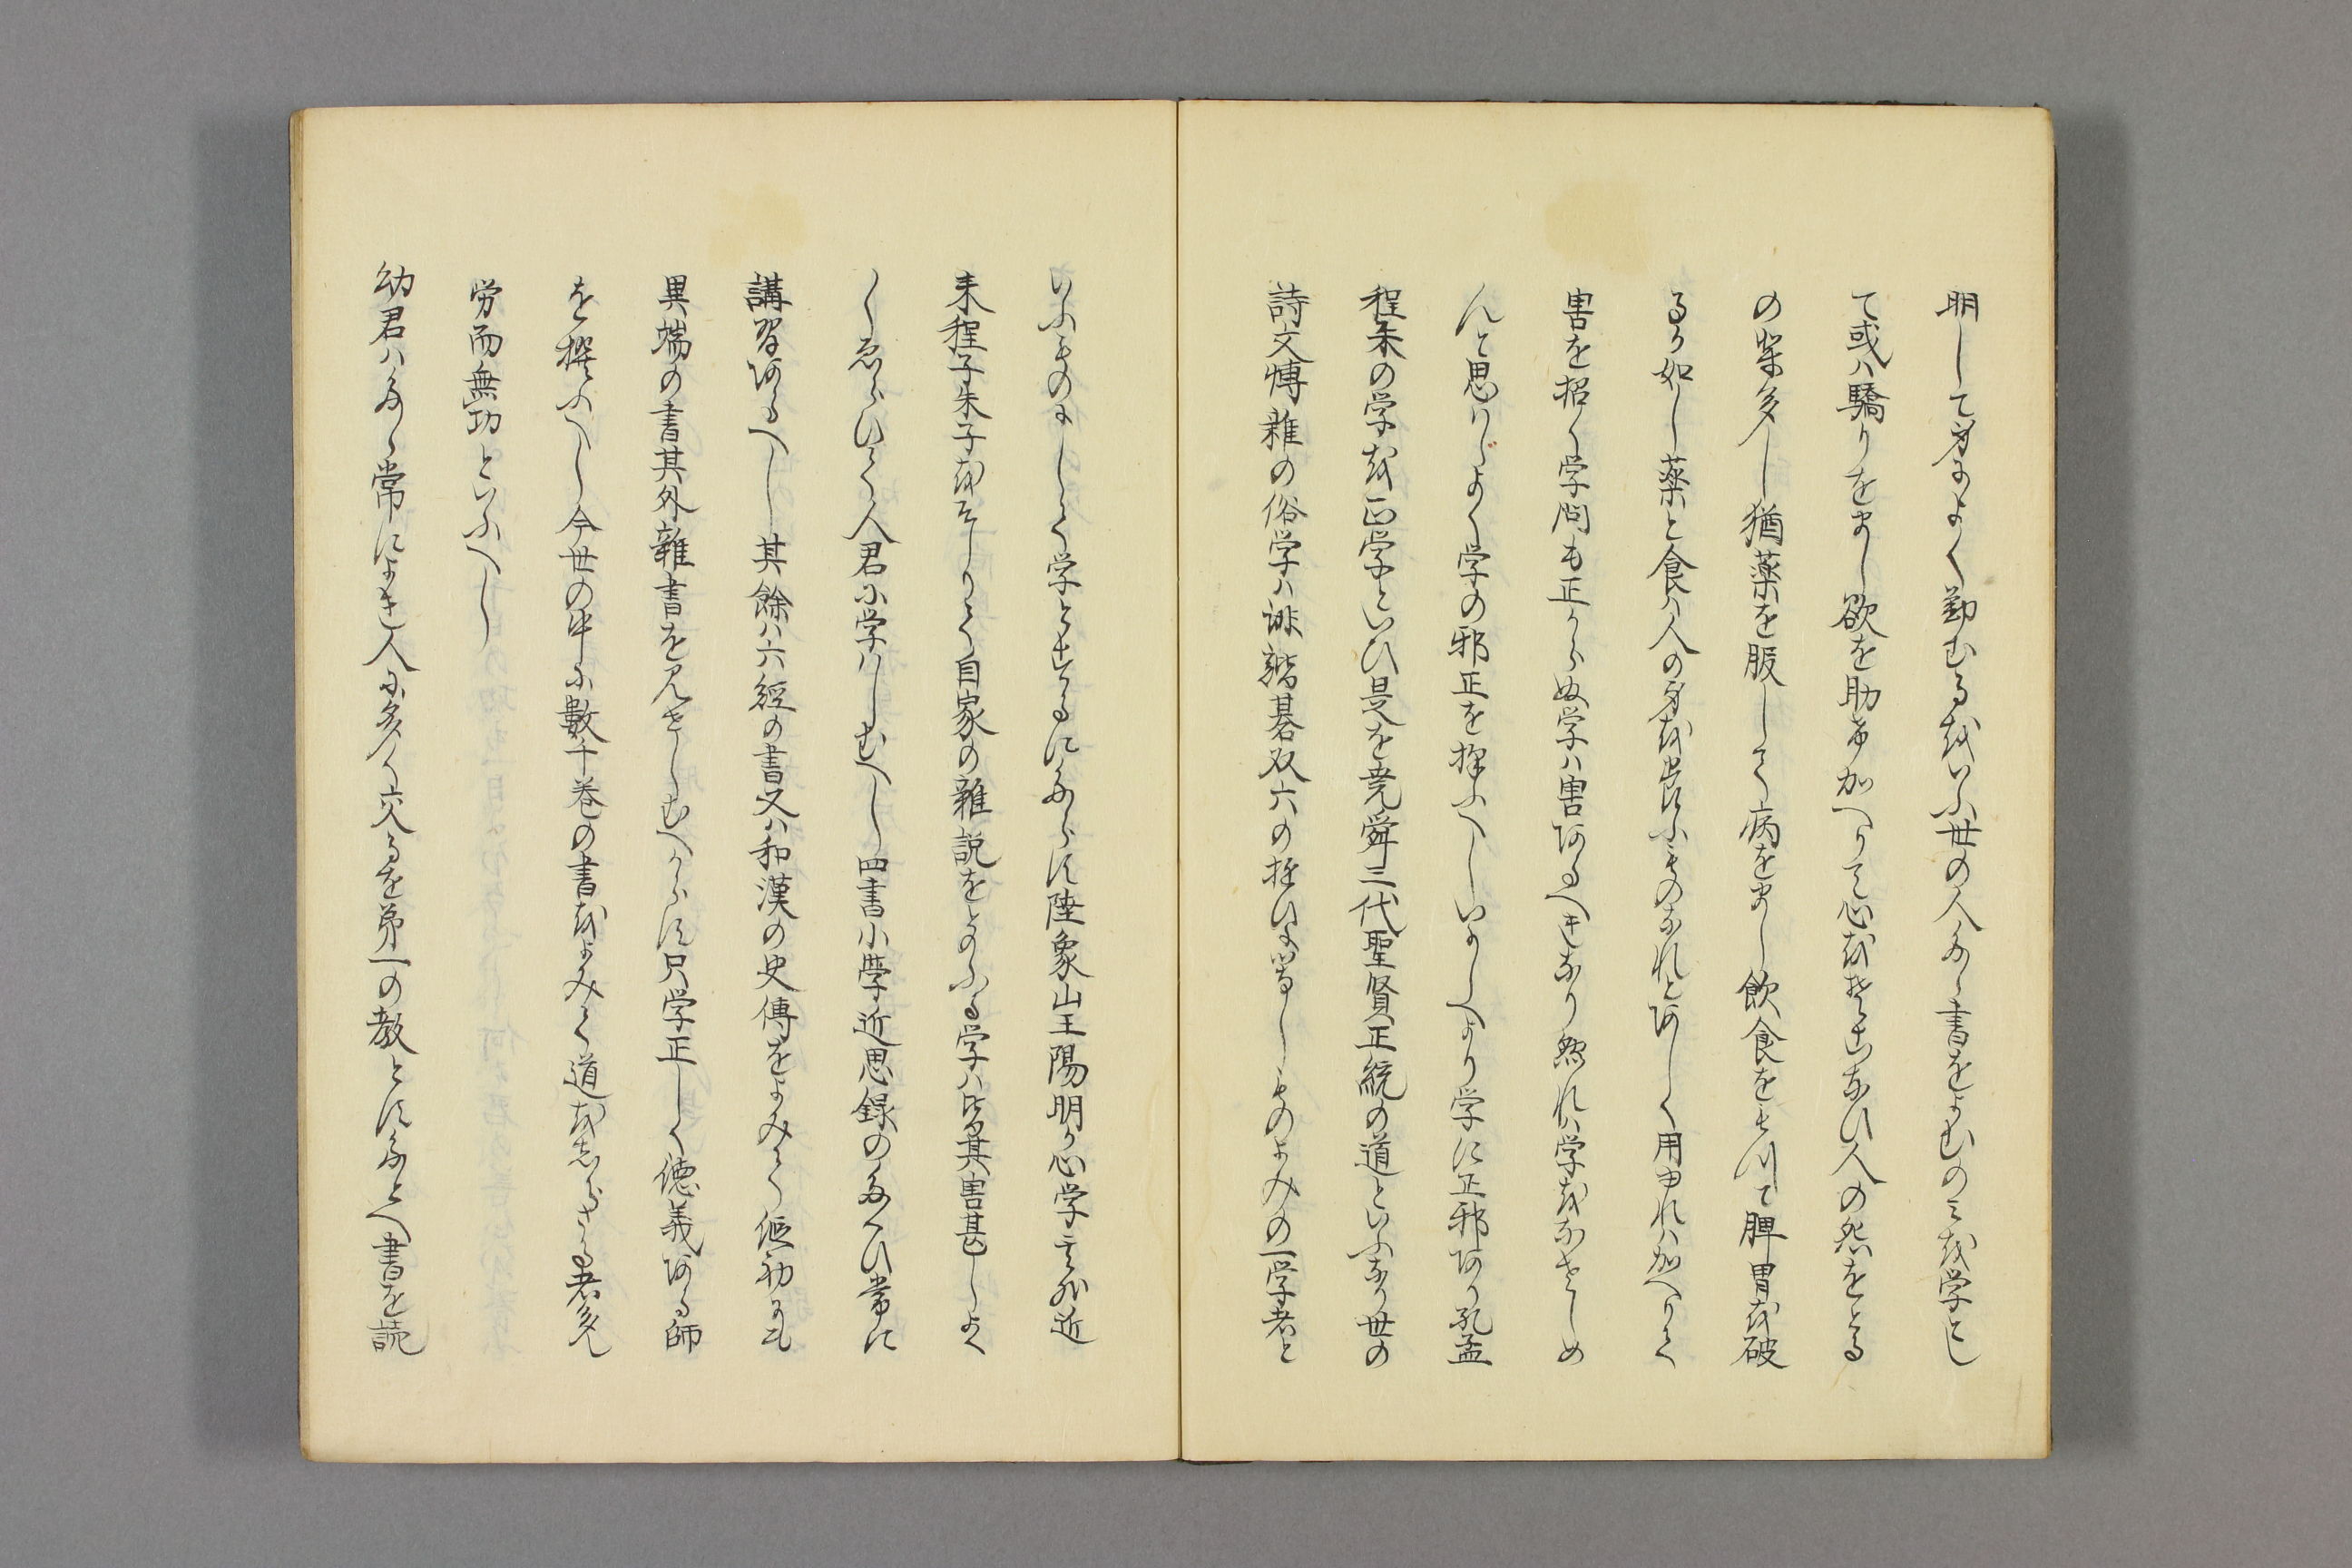 明して身によく勤むるをいふ世の人多く書をよむのミを学とし
て或ハ驕りをまし欲を助け加へりて心をそこなひ人の怨をとる
の業多し猶薬を服して病をまし飲食をもつて脾胃を破
るか如し薬と食ハ人の身を養ふものなれとあしく用ゆれハ加へりて
害を招く学問も正からぬ学ハ害あるへきなり然れハ学をなさしめ
んと思ハゞよく学の邪正を択ふへしいにしへより学に正邪あり孔孟
程朱の学を正学といひ是を堯舜三代聖賢正統の道といふなり世の
詩文博雑の俗学ハ誹諧碁双六の遊ひに等しものよみの一学者と
いふものにして学とするにたらす陸象山王陽明か心学其外近
来程子朱子をそしりて自家の雑説をとのふる学ハ皆其害甚しよく
〳〵ゑらひて人君に学ハしむへし四書小学近思録のたくひ常に
講習あるへし其餘ハ六經の書又ハ和漢の史傳をよみて仮初にも
異端の書其外雜書を見さしむへからす只学正しく徳義ある師
を撰ふへし今世の中に數千巻の書をよみて道をしらさる者多し
労而無功といふへし
幼君ハ多く常によき人に多く交るを第一の教とすたとへ書を読